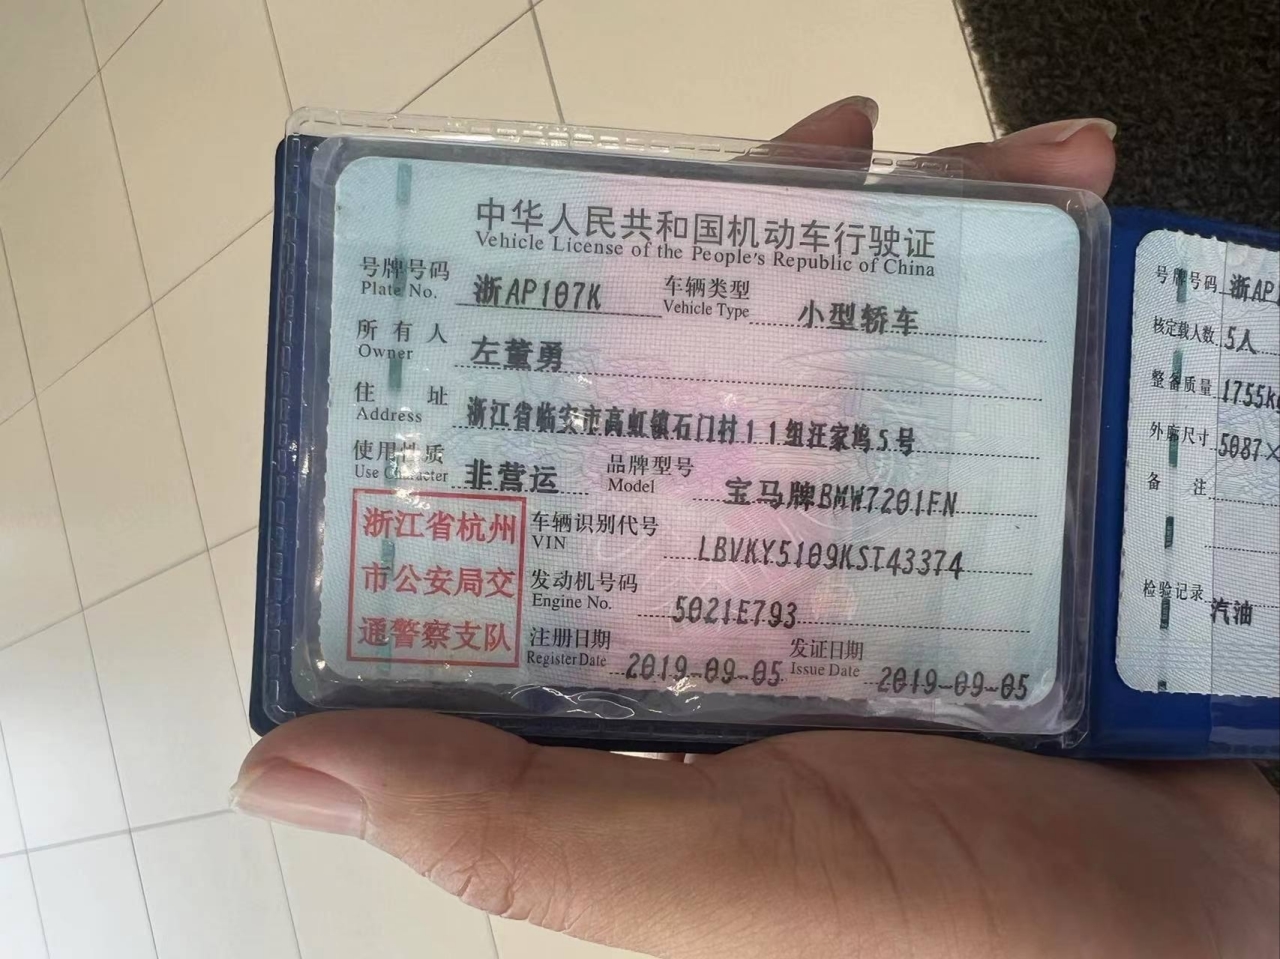 中华人民共和国机动车行驶证
Vehicle License of the People's Republic of China
号牌号码 浙AP107K 车辆类型 小型轿车
Plate No. Vehicle Type
所有人 左董勇
Owner
住址 浙江省临安市高虹镇石门村11组汪家坞5号
Address
使用性质 非营运 品牌型号 宝马牌BMW7201FN
Use Character Model
浙江省杭州
市公安局交
通警察支队
车辆识别代号 LBVKY5109KST43374
VIN
发动机号码 5021E793
Engine No.
注册日期 2019-09-05 发证日期 2019-09-05
Register Date Issue Date
号牌号码 浙AP
核定载人数 5人
整备质量 1755k
外廓尺寸 5087×
备注
检验记录
汽油